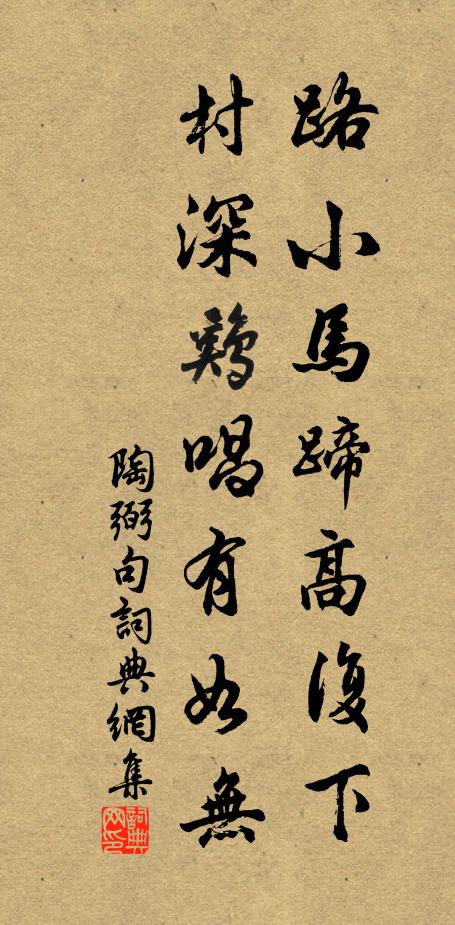 路小馬蹄高復下
村深鷄唱有如無
陶弼句詞典網集
詞典網印